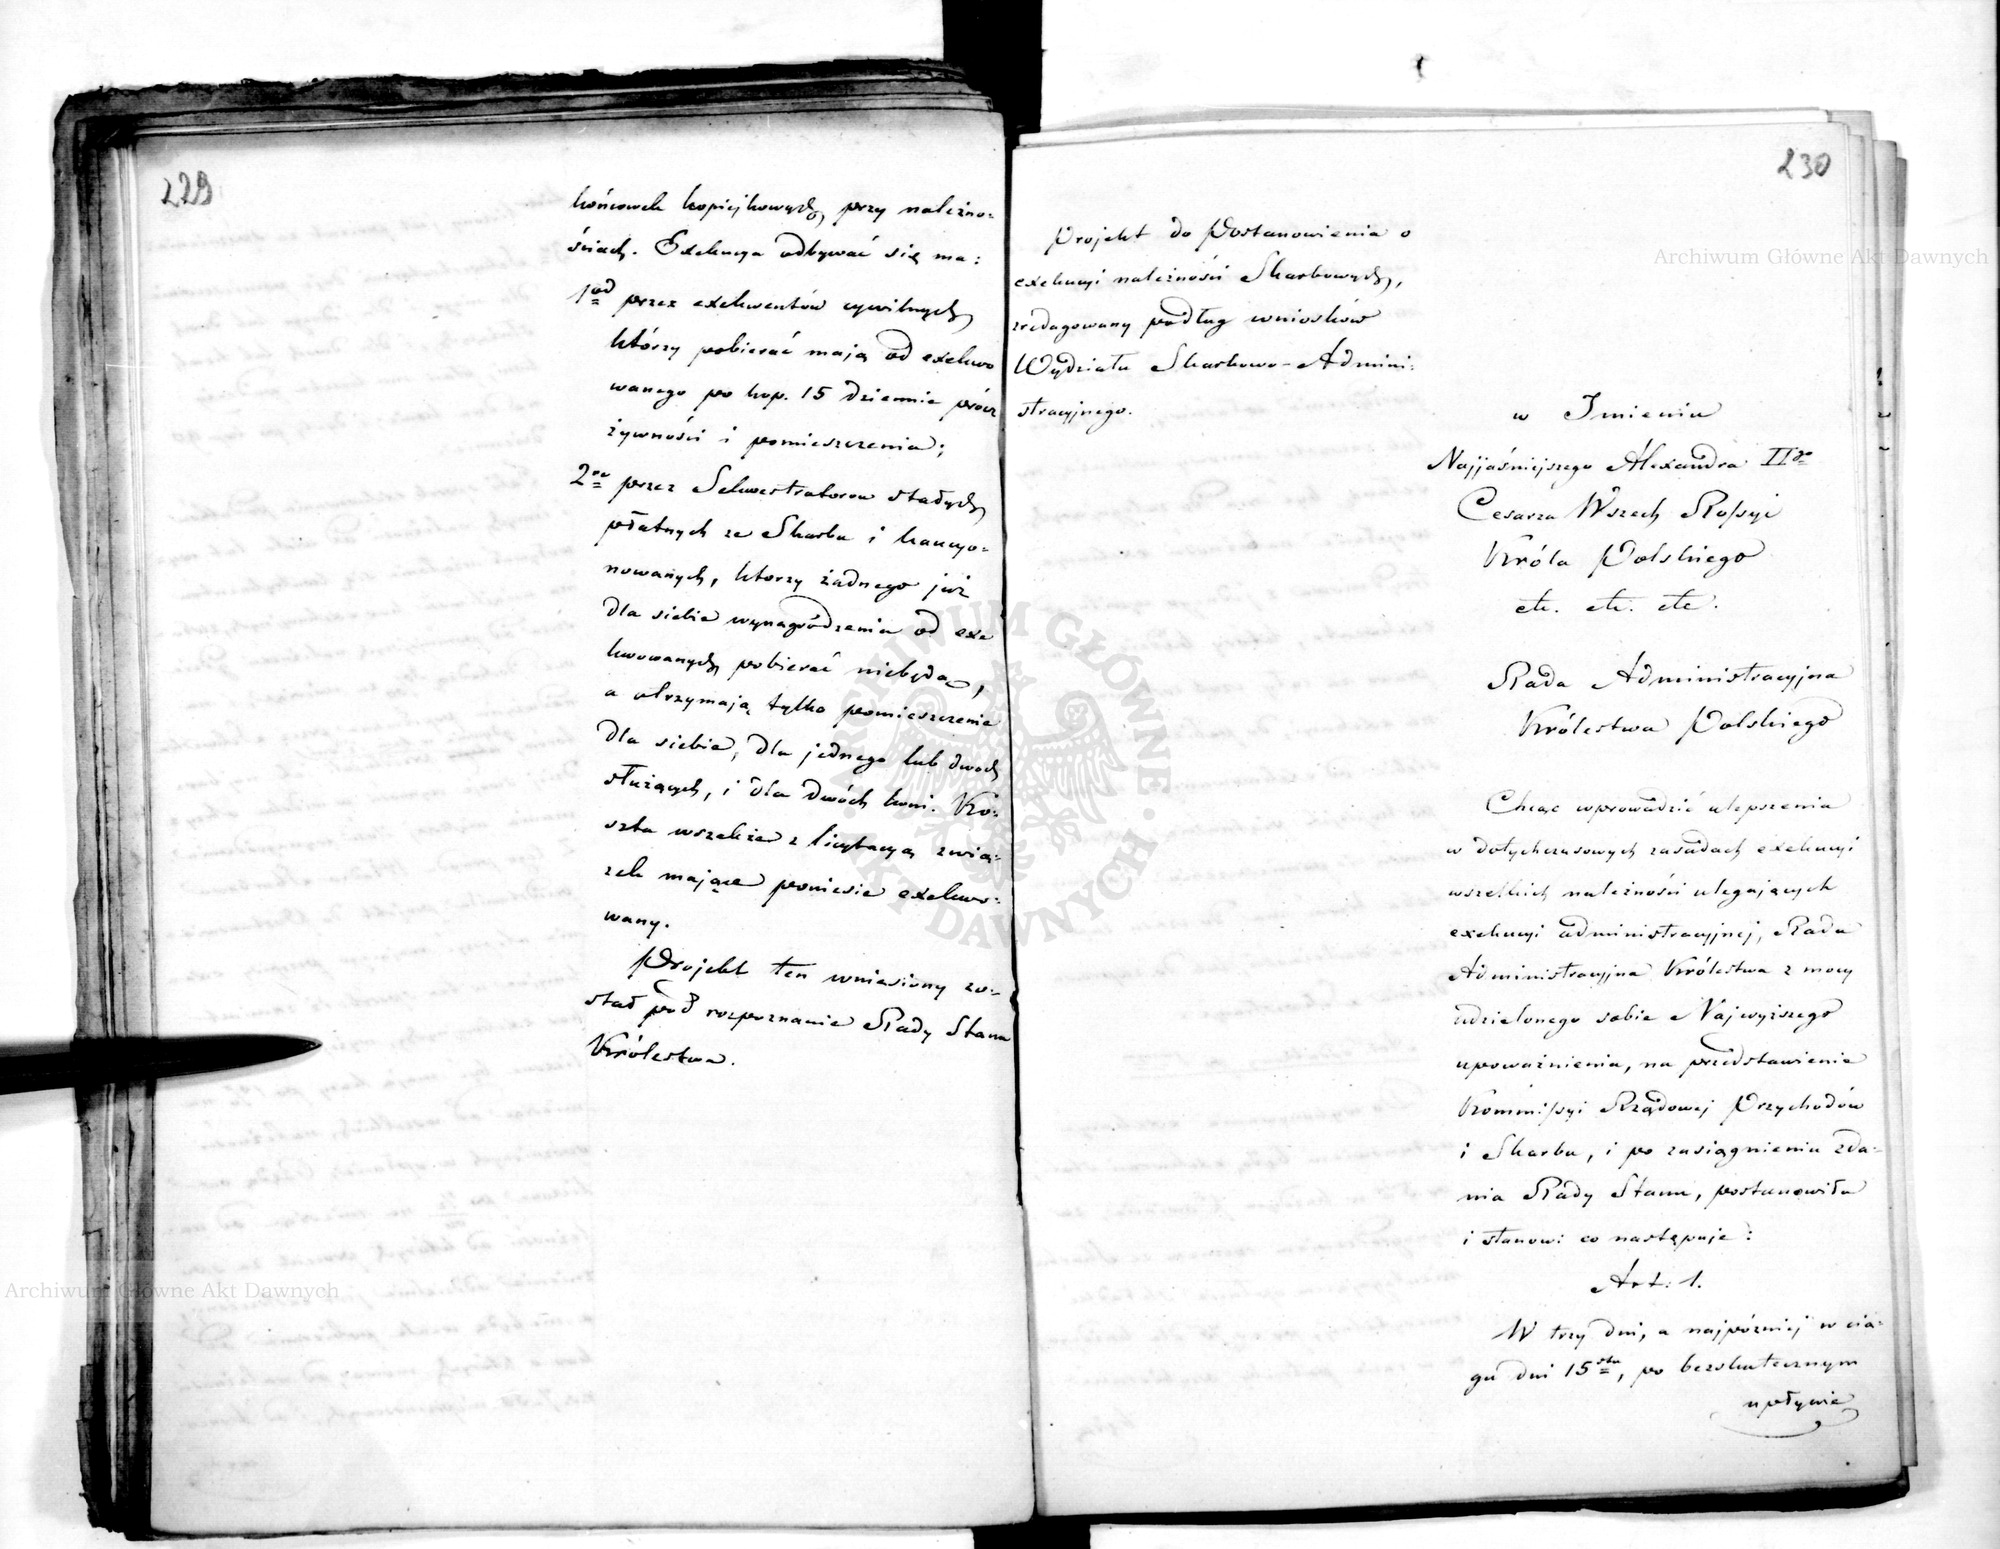 229
końcówek kopiejkowych, przy należno:
ściach. Exekucya odbywać się ma:
1od przez exekwentów cywilnych,
którzy pobierać mają od exekwo
wanego po kop. 15 dziennie prócz
żywności i pomieszczenia;
2re przez Sekwestratorów stałych,
płatnych ze Skarbu i kaucyo-
nowanych, którzy żadnego już
dla siebie wynagrodzenia od exe
kwowanych, pobierać niebędą,
a otrzymają tylko pomieszczenie
dla siebie, dla jednego lub dwoch
służących, i dla dwóch koni. Ko-
szta wszelkie z licytacyą zwią-
zek mające poniesie exekwo-
wany.
Projekt ten wniesiony zo-
stał pod rozpoznanie Rady Stanu
Królestwa.
230
Projekt do Postanowienia o
exekucyi należności Skarbowych,
zredagowany podług wniosków
Wydziału Skarbowo-Admini-
stracyjnego.
w Imieniu
Najjaśniejszego Alexandra IIgo
Cesarza Wszech Rossyi
Króla Polskiego
etc. etc. etc.
Rada Administracyjna
Królestwa Polskiego
Chcąc wprowadzić ulepszenia
w dotychczasowych zasadach exekucyi
wszelkich należności ulegających
exekucyi administracyjnej, Rada
Administracyjna Królestwa z mocy
udzielonego sobie Najwyższego
upoważnienia, na przedstawienie
Kommissyi Rządowej Przychodów
i Skarbu, i po zasiągnieniu zda-
nia Rady Stanu, postanowiła
i stanowi co następuje:
Art: 1.
W trzy dni, a najpóźniej w cią-
gu dni 15stu, po bezskutecznym
upływie
Archiwum Główne Akt Dawnych
Archiwum Główne Akt Dawnych
ARCHIWUM GŁÓWNE AKT DAWNYCH